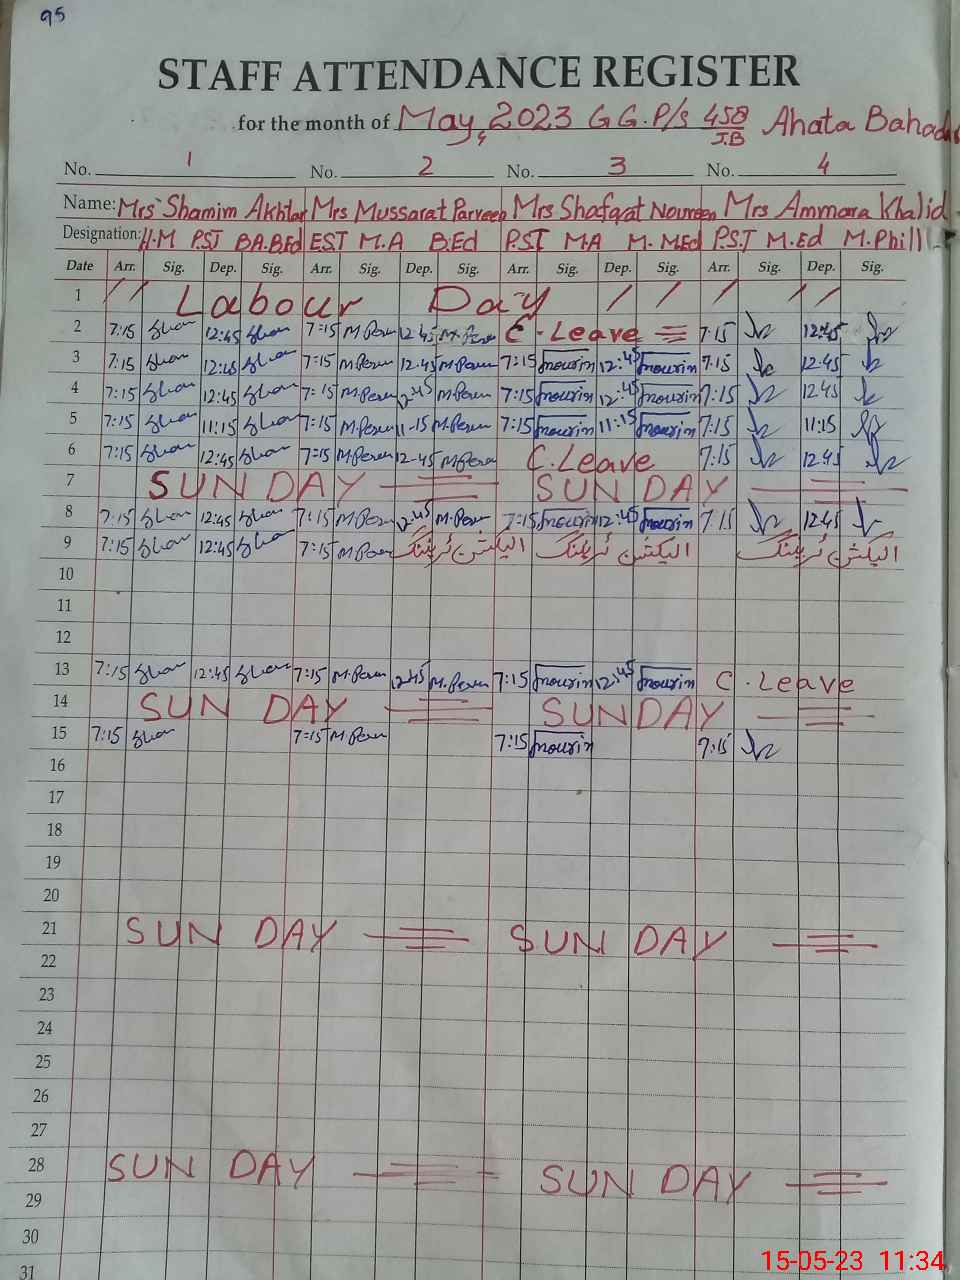 95
STAFF ATTENDANCE REGISTER
for the month of May, 2023 G G. P/s 458/J.B Ahata Bahad
No. 1 No. 2 No. 3 No. 4
Name: Mrs Shamim Akhtar Mrs Mussarat Parveen Mrs Shafqat Noureen Mrs Ammara Khalid
Designation: H.M PST BA.BEd EST M.A B.Ed P.ST M.A M. MEd P.S.T M.Ed M.Phill
Date Arr. Sig. Dep. Sig. Arr. Sig. Dep. Sig. Arr. Sig. Dep. Sig. Arr. Sig. Dep. Sig.
1 Labour Day
2 7:15 12:45 7=15 M.Peru 12.45 M.Peru C.Leave 7:15 12:45
3 7:15 12:45 7=15 M.Peru 12.45 M.Peru 7:15 nourin 12:45 nourin 7:15 12.45
4 7:15 12:45 7=15 M.Peru 12.45 M.Peru 7:15 nourin 12:45 nourin 7:15 12.45
5 7:15 11:15 7=15 M.Peru 11-15 M.Peru 7:15 nourin 11:15 nourin 7:15 11:15
6 7:15 12:45 7=15 M.Peru 12-45 M.Peru C.Leave 7:15 12.45
7 SUNDAY SUNDAY
8 7:15 12:45 7:15 M.Peru 12.45 M.Peru 7:15 nourin 12:45 nourin 7:15 12.45
9 7:15 12:45 7=15 M.Peru الیکشن ٹریننگ الیکشن ٹریننگ الیکشن ٹریننگ
10
11
12
13 7:15 12:45 7:15 M.Peru 12.45 M.Peru 7:15 nourin 12:45 nourin C.Leave
14 SUNDAY SUNDAY
15 7:15 7=15 M.Peru 7:15 nourin 7:15
16
17
18
19
20
21 SUNDAY SUNDAY
22
23
24
25
26
27
28 SUNDAY SUNDAY
29
30
31
15-05-23 11:34